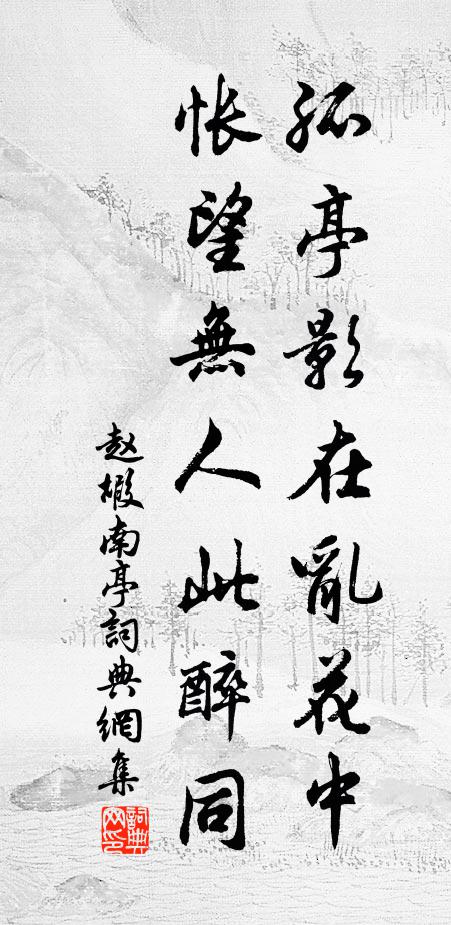 孤亭影在亂花中
悵望無人此醉同
赵嘏南亭詞典網集
詞典網印